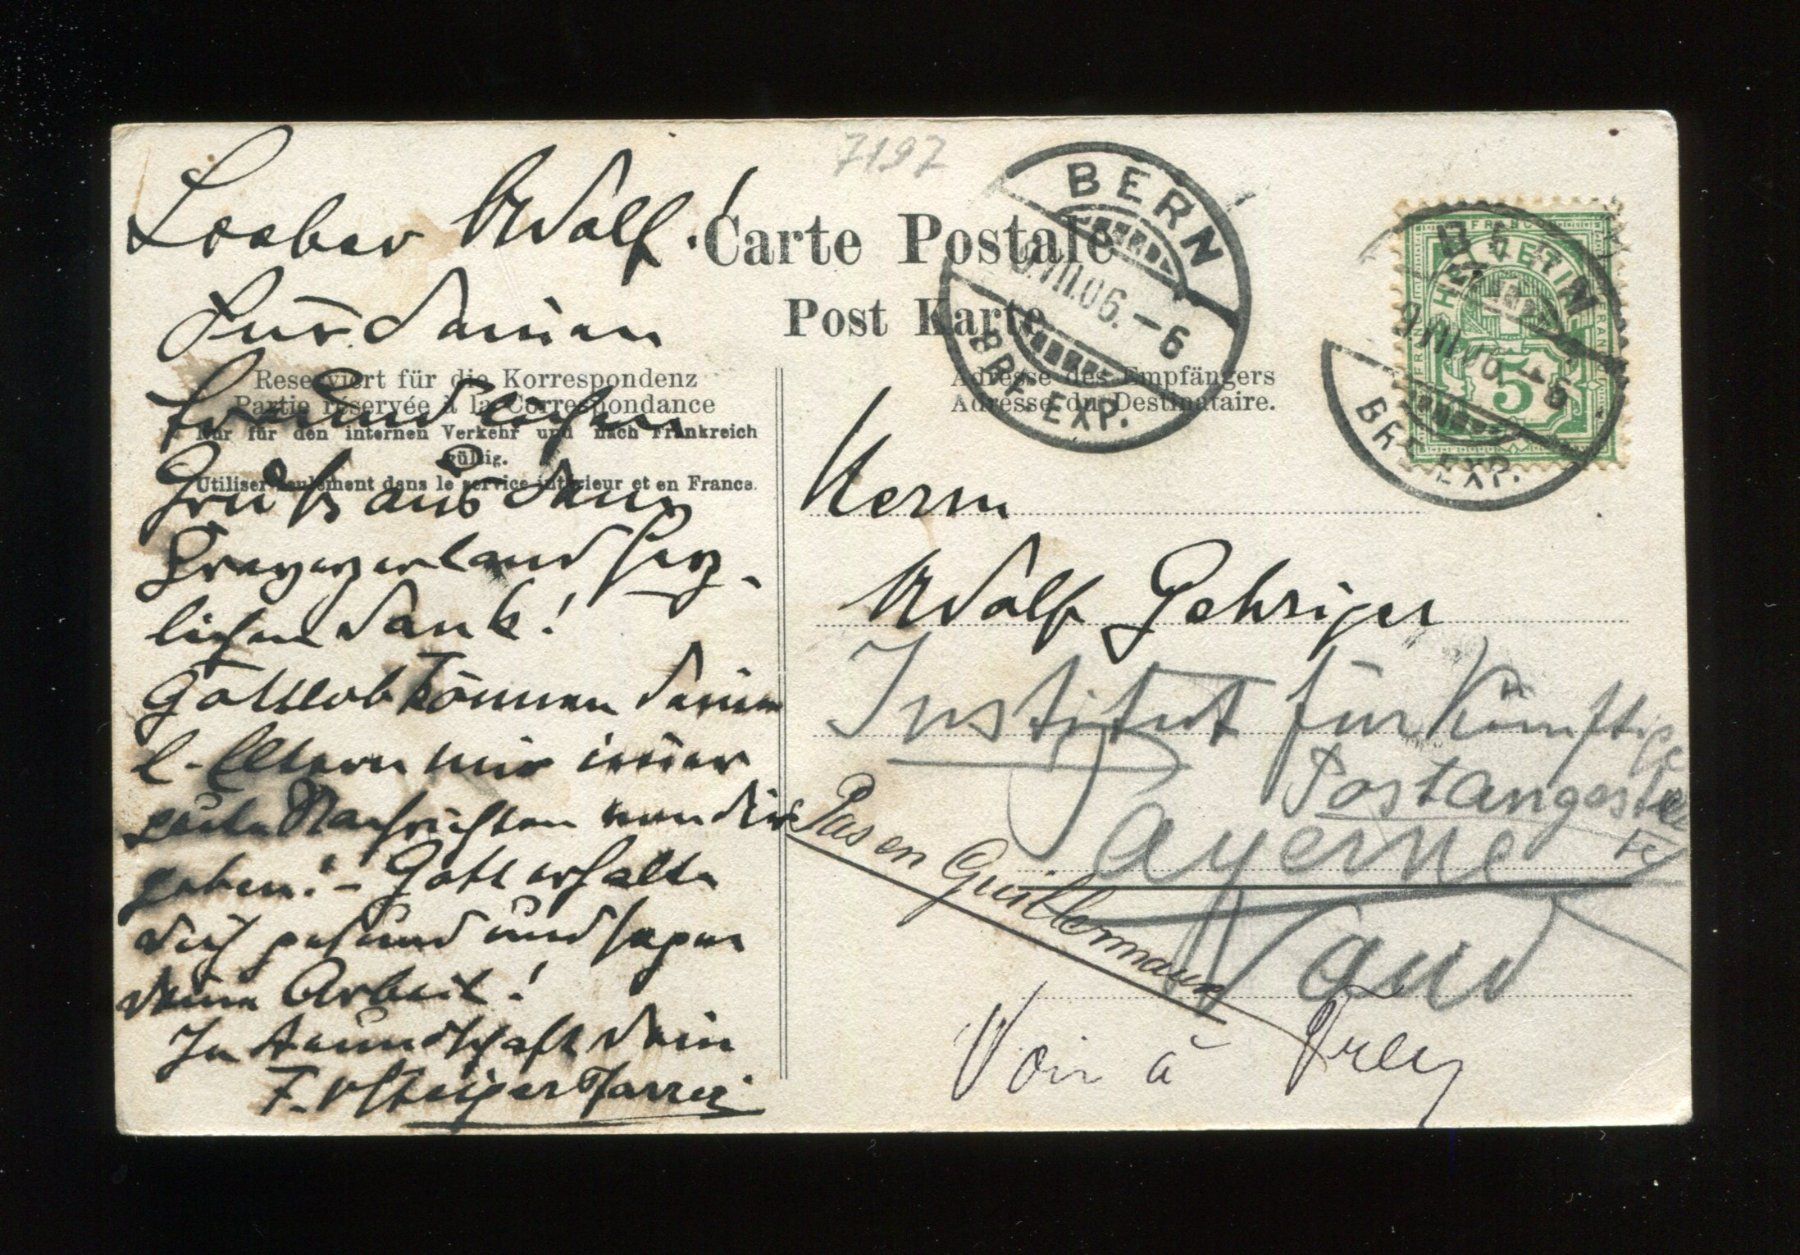 7197
Carte Postale
Post Karte
BERN
VII.06.-6
BRF. EXP.
HELVETIA
FRANCO
5
BERN
VII.06.-6
BRF. EXP.
Reserviert für die Korrespondenz
Partie réservée à la Correspondance
Nur für den internen Verkehr und nach Frankreich
gültig.
Utiliser seulement dans le service intérieur et en France.
Adresse des Empfängers
Adresse du Destinataire.
Lieber Adolf!
Für Deinen
freundlichen
Gruß aus dem
Greyerzerland herz-
lichen Dank!
Gottlob können Deine
l. Eltern mir immer
gute Nachrichten von dir
geben! - Gott erhalte
dich gesund und segne
deine Arbeit!
In Freundschaft dein
F. v Steiger Pfarrer
Herrn
Adolf Gehriger
Institut für künftige
Postangestellte
Payerne
Vaud
Pas en Guillermaux
Voir à Trey